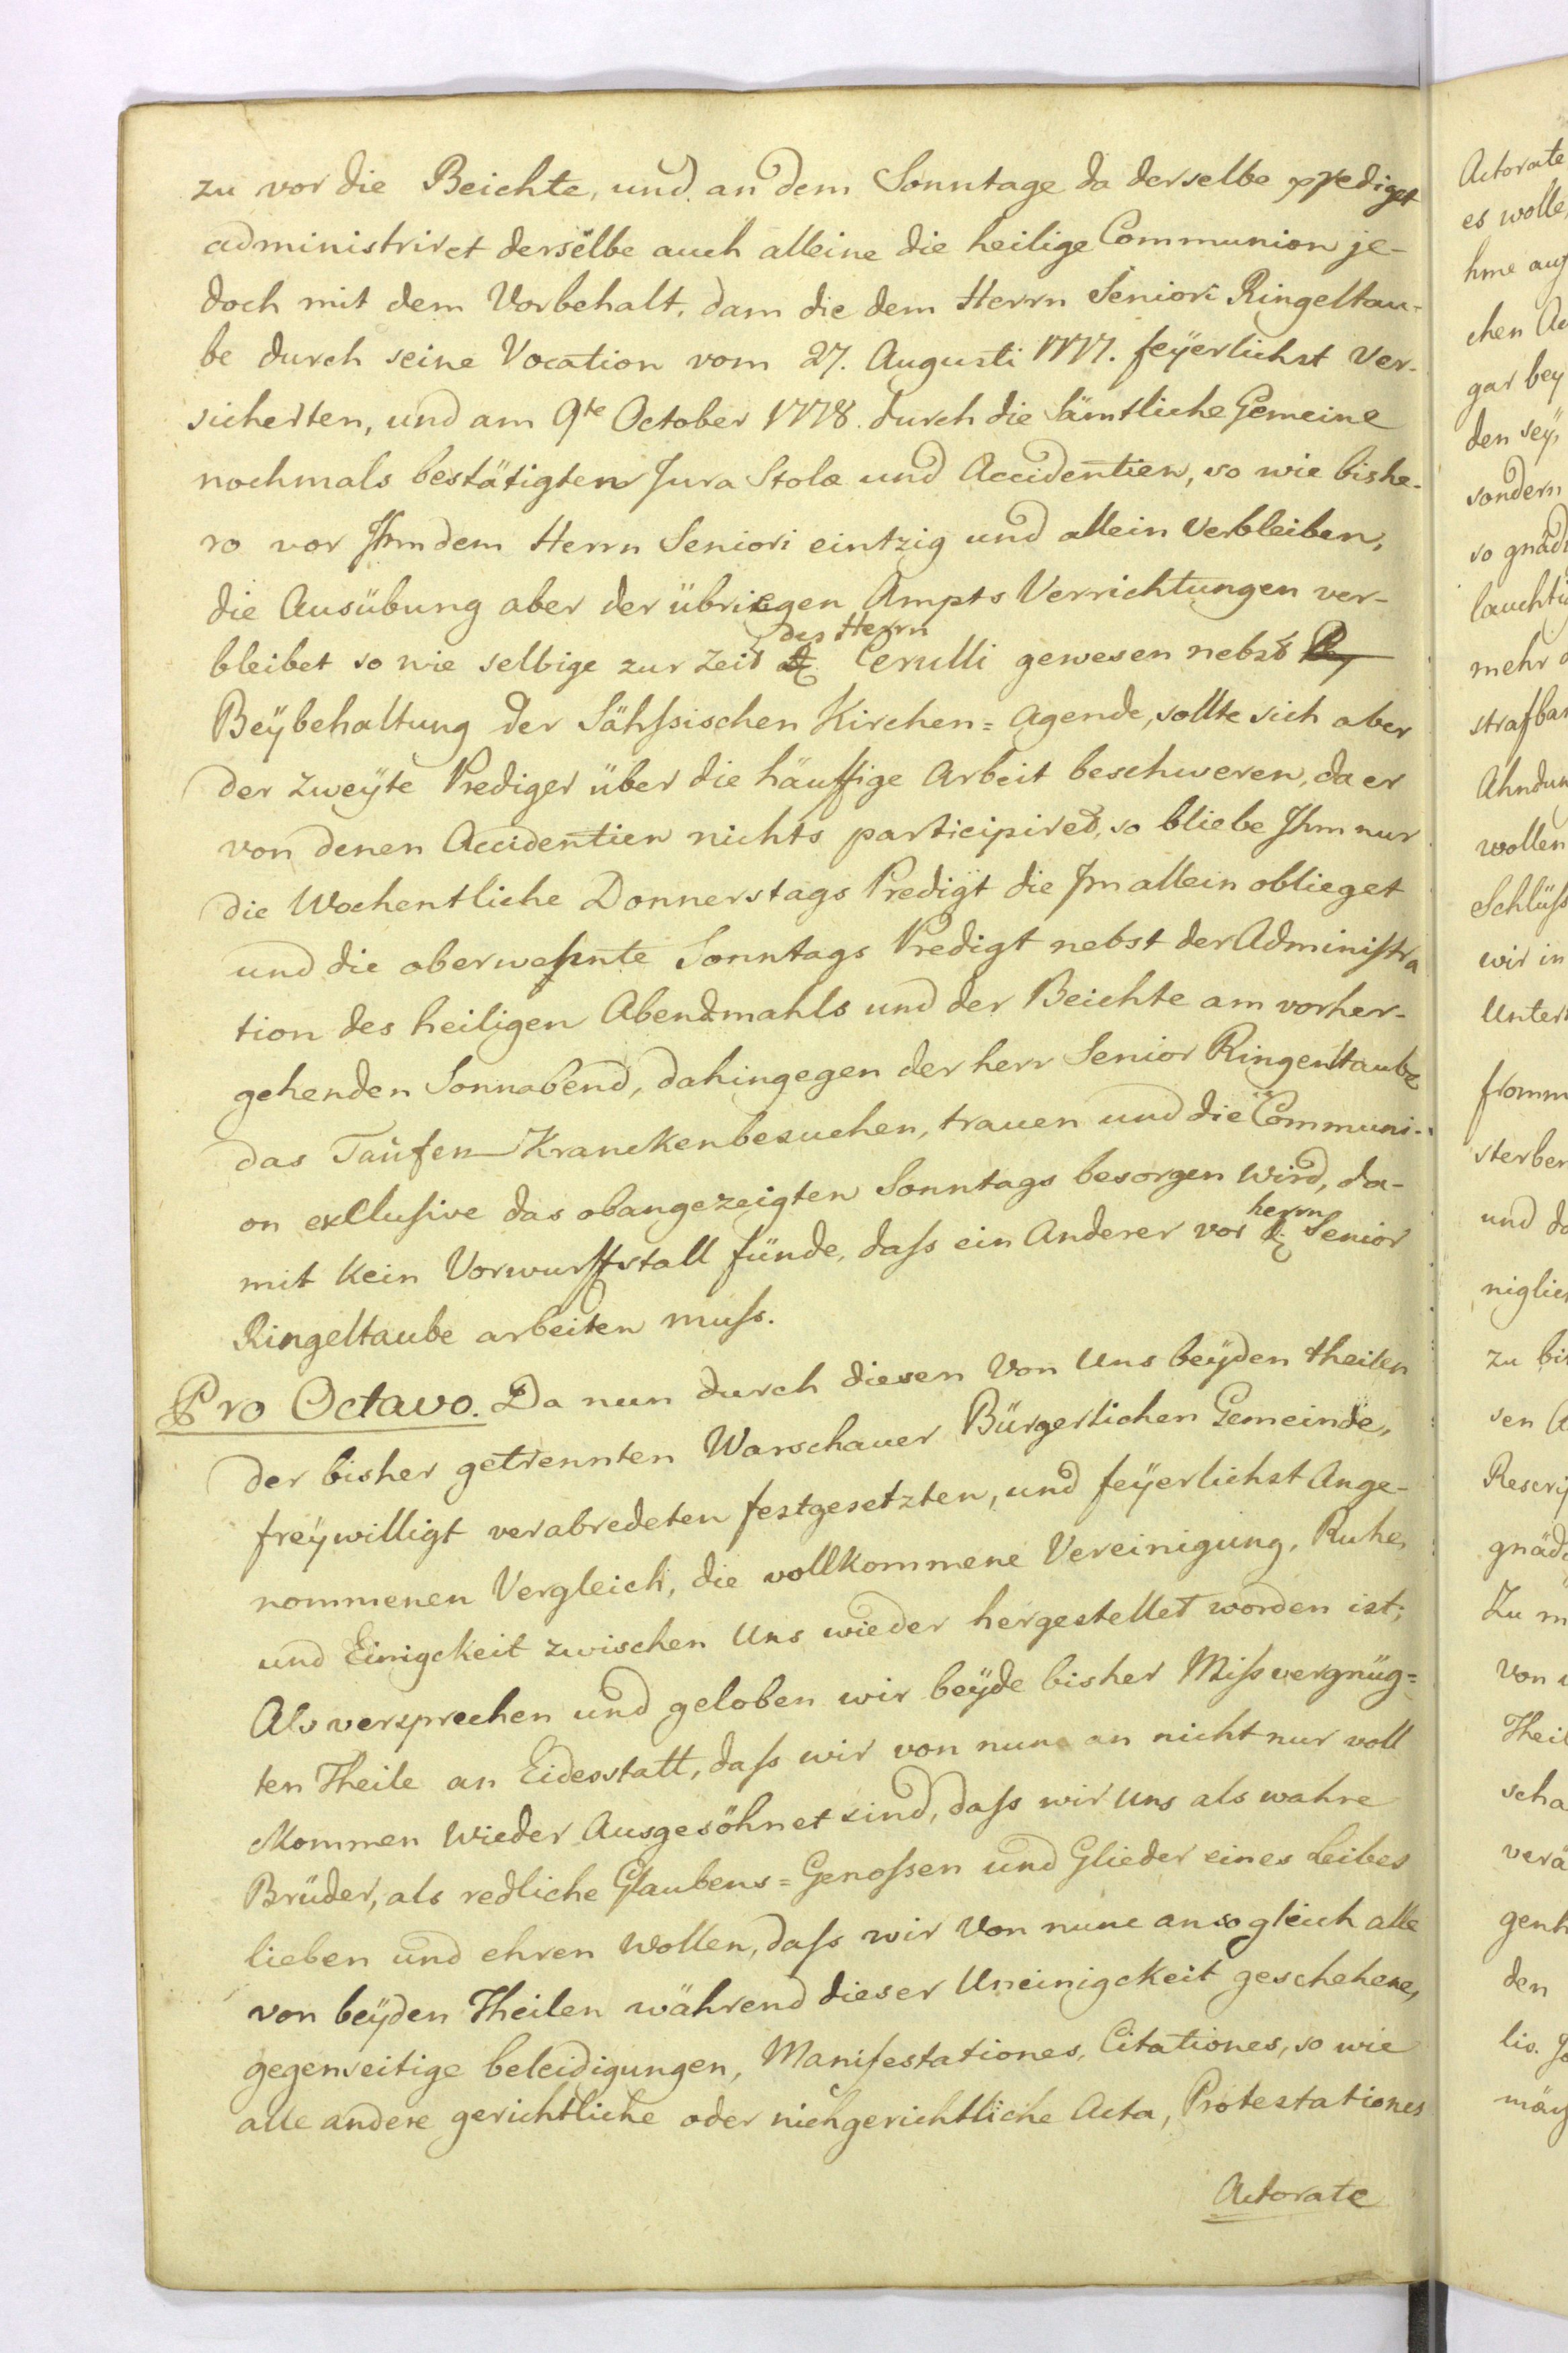 zu vor die Beichte, und an dem Sonntage da derselbe prediget
administriret derselbe auch alleine die heilige Communion je-
doch mit dem Vorbehalt, dam die dem Herrn Seniori Ringeltau-
be durch seine Vocation vom 27. Augusti 1777. feÿerlichst Ver-
sicherten, und am 9te October 1778. durch die Sämtliche Gemeine
nochmals bestätigten Jura Stolæ und Accidentien, so wie bishe-
ro vor Ihm dem Herrn Seniori eintzig und allein Verbleiben,
die Ausübung aber der übriegen Ampts Verrichtungen ver-
des Herrn
bleibet so wie selbige zur Zeit Cerulli gewesen nebst
Beÿbehaltung der Sähssischen Kirchen = Agende, sollte sich aber
der Zweÿte Prediger über die häuffige Arbeit beschweren, da er
von denen Accidentien nichts participiret, so bliebe Ihm nur
die Wochentliche Donnerstags Predigt die Im allein oblieget
und die oberwehnte Sonntags Predigt nebst der Administra
tion des heiligen Abendmahls und der Beichte am vorher-
gehenden Sonnabend, dahingegen der herr Senior Ringenltaube
das Taufen Kranckenbesuchen, trauen und die Communi-
on exclusive das obangezeigten Sonntags besorgen wird, da-
herrn
mit Kein Vorwurffstall fünde, daß ein Anderer vor Senior
Ringeltaube arbeiten muß.
Pro Octavo. Da nun durch diesen Von Uns beÿden theilen
der bisher getrennten Warschauer Bürgerlichen Gemeinde,
freÿwilligt verabredeten festgesetzten, und feÿerlichst Ange-
nommenen Vergleich, die vollkommene Vereinigung, Ruhe,
und Einigckeit zwischen Uns wieder hergestellet worden ist;
Als versprechen und geloben wir beÿde bisher Mißvergnüg=
ten Theile an Eidesstatt, daß wir von nun an nicht nur voll
Kommen Wieder Ausgesöhnet sind, daß wir Uns als wahre
Brüder, als redliche Glaubens = Genoßen und Glieder eines Leibes
lieben und ehren Wollen, daß wir Von nune an so gleich alle
von beÿden Theilen während dieser Uneinigckeit geschehene,
gegenseitige beleidigungen, Manifestationes, Citationes, so wie
alle andere gerichtliche oder nichgerichtliche Acta, Protestationes
Actorate
Actorate
es wolle
hme auf
chen
gar bey
den seÿ,
sondern
so gnäd
lauchti
mehr
strafbar
Ahndun
wollen
Schlüß
wir in
Unter
fromm
sterben
und da
niglich
zu bi
sen
Rescrip
gnädi
Zu m
Von
Theil
scha
verä
genh
den
lis.
mäß